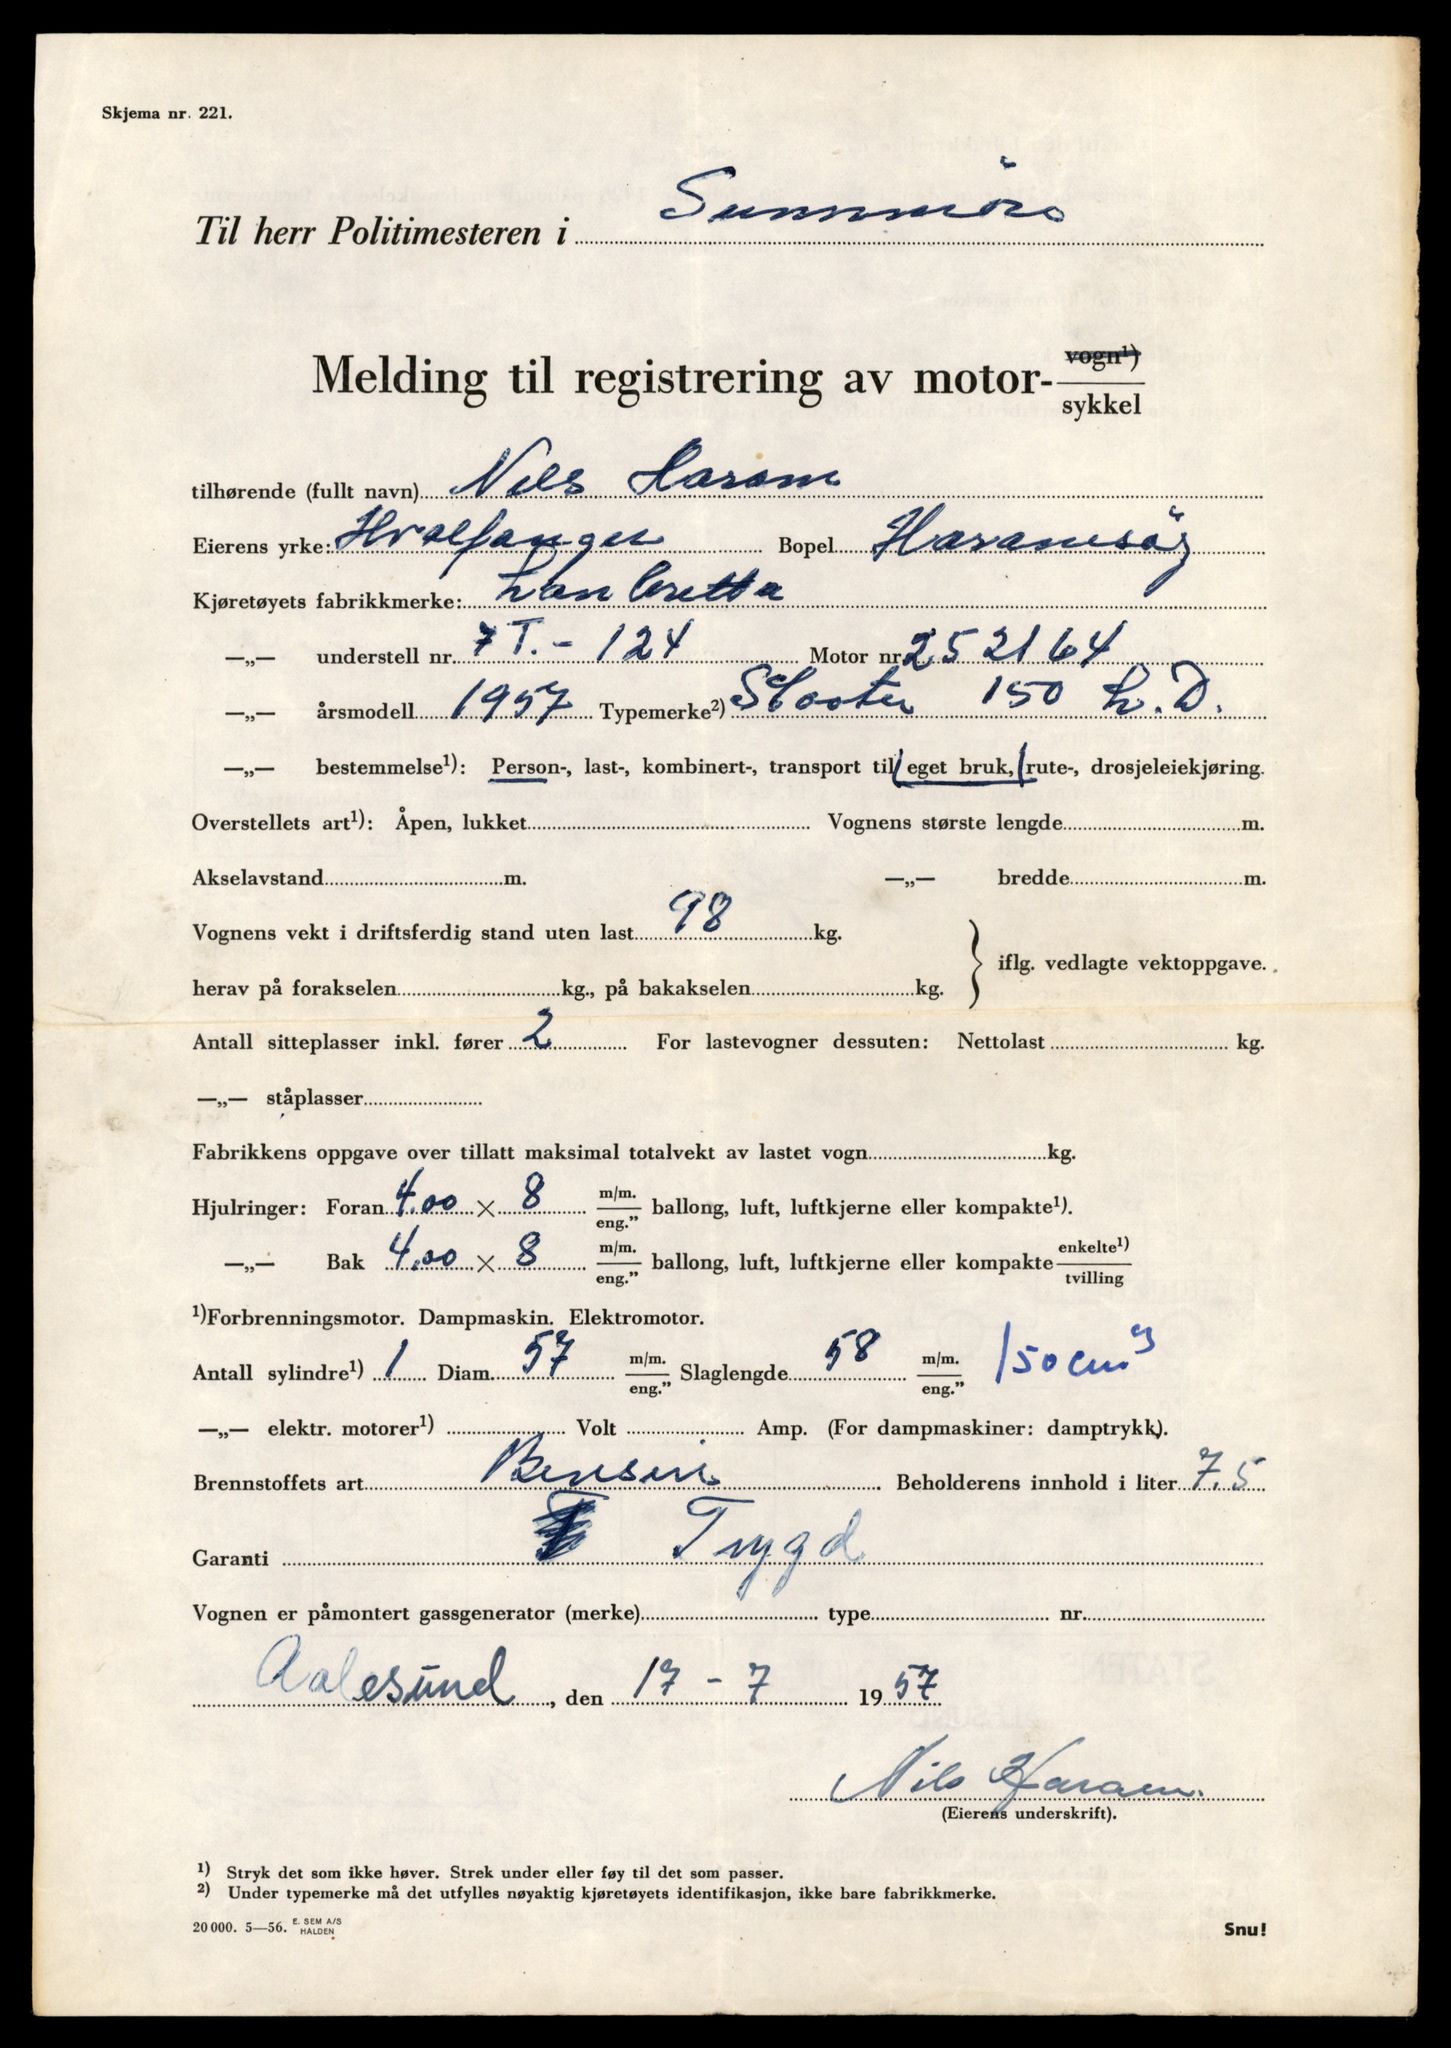 Skjema nr. 221.
Til herr Politimesteren i Sunnmöre
Melding til registrering av motor- vogn¹) / sykkel
tilhørende (fullt navn) Nils Haram
Eierens yrke: Hvalfanger Bopel Haramsöy
Kjøretøyets fabrikkmerke: Lambretta
—„— understell nr. 7 T. - 124 Motor nr. 252164
—„— årsmodell 1957 Typemerke²) Skooter 150 L.D.
—„— bestemmelse¹): Person-, last-, kombinert-, transport til (eget bruk, (rute-, drosjeleiekjøring.
Overstellets art¹): Åpen, lukket Vognens største lengde m.
Akselavstand m. —„— bredde m.
Vognens vekt i driftsferdig stand uten last 98 kg.
iflg. vedlagte vektoppgave.
herav på forakselen kg., på bakakselen kg.
Antall sitteplasser inkl. fører 2 For lastevogner dessuten: Nettolast kg.
—„— ståplasser
Fabrikkens oppgave over tillatt maksimal totalvekt av lastet vogn kg.
Hjulringer: Foran 4.00 × 8 m/m. / eng.” ballong, luft, luftkjerne eller kompakte¹).
—„— Bak 4.00 × 8 m/m. / eng.” ballong, luft, luftkjerne eller kompakte enkelte¹) / tvilling
¹)Forbrenningsmotor. Dampmaskin. Elektromotor.
Antall sylindre¹) 1 Diam. 57 m/m. / eng.” Slaglengde 58 m/m. / eng.” 150 cm³
—„— elektr. motorer¹) Volt Amp. (For dampmaskiner: damptrykk).
Brennstoffets art Bensin Beholderens innhold i liter 7.5
Garanti Trygd
Vognen er påmontert gassgenerator (merke) type nr.
Aalesund, den 17 - 7 1957
Nils Haram.
(Eierens underskrift).
¹) Stryk det som ikke høver. Strek under eller føy til det som passer.
²) Under typemerke må det utfylles nøyaktig kjøretøyets identifikasjon, ikke bare fabrikkmerke.
20 000. 5—56. E. SEM A/S HALDEN
Snu!